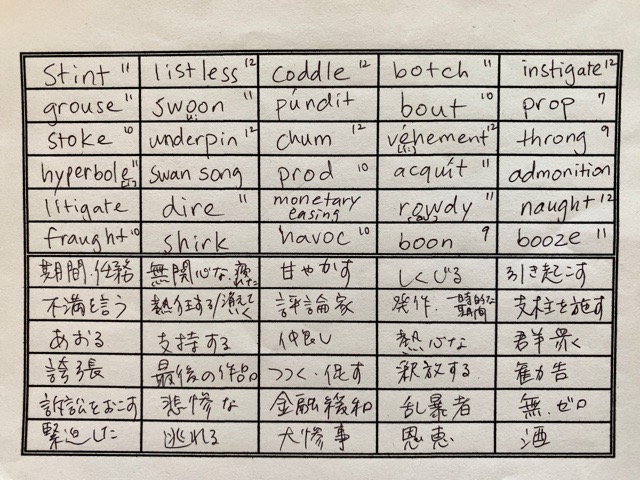 stint 11 listless 12 coddle 12 botch 11 instigate 12
grouse 11 swoon 11 púndit bout 10 prop 7
stoke 10 underpin 12 chum 12 véhement 12 throng 9
hyperbole 11 swan song prod 10 acquít 11 admonition
litigate dire 11 monetary easing rowdy 11 naught 12
fraught 10 shirk havoc 10 boon 9 booze 11
期間、任務 無関心な、疲れた 甘やかす しくじる 引き起こす
不満を言う 熱狂する/消えていく 評論家 発作、一時的な期間 支柱を施す
あおる 支持する 仲良し 熱心な 群衆
誇張 最後の作品 つつく・促す 釈放する 勧告
訴訟をおこす 悲惨な 金融緩和 乱暴者 無・ゼロ
緊迫した 逃れる 大惨事 恩恵 酒